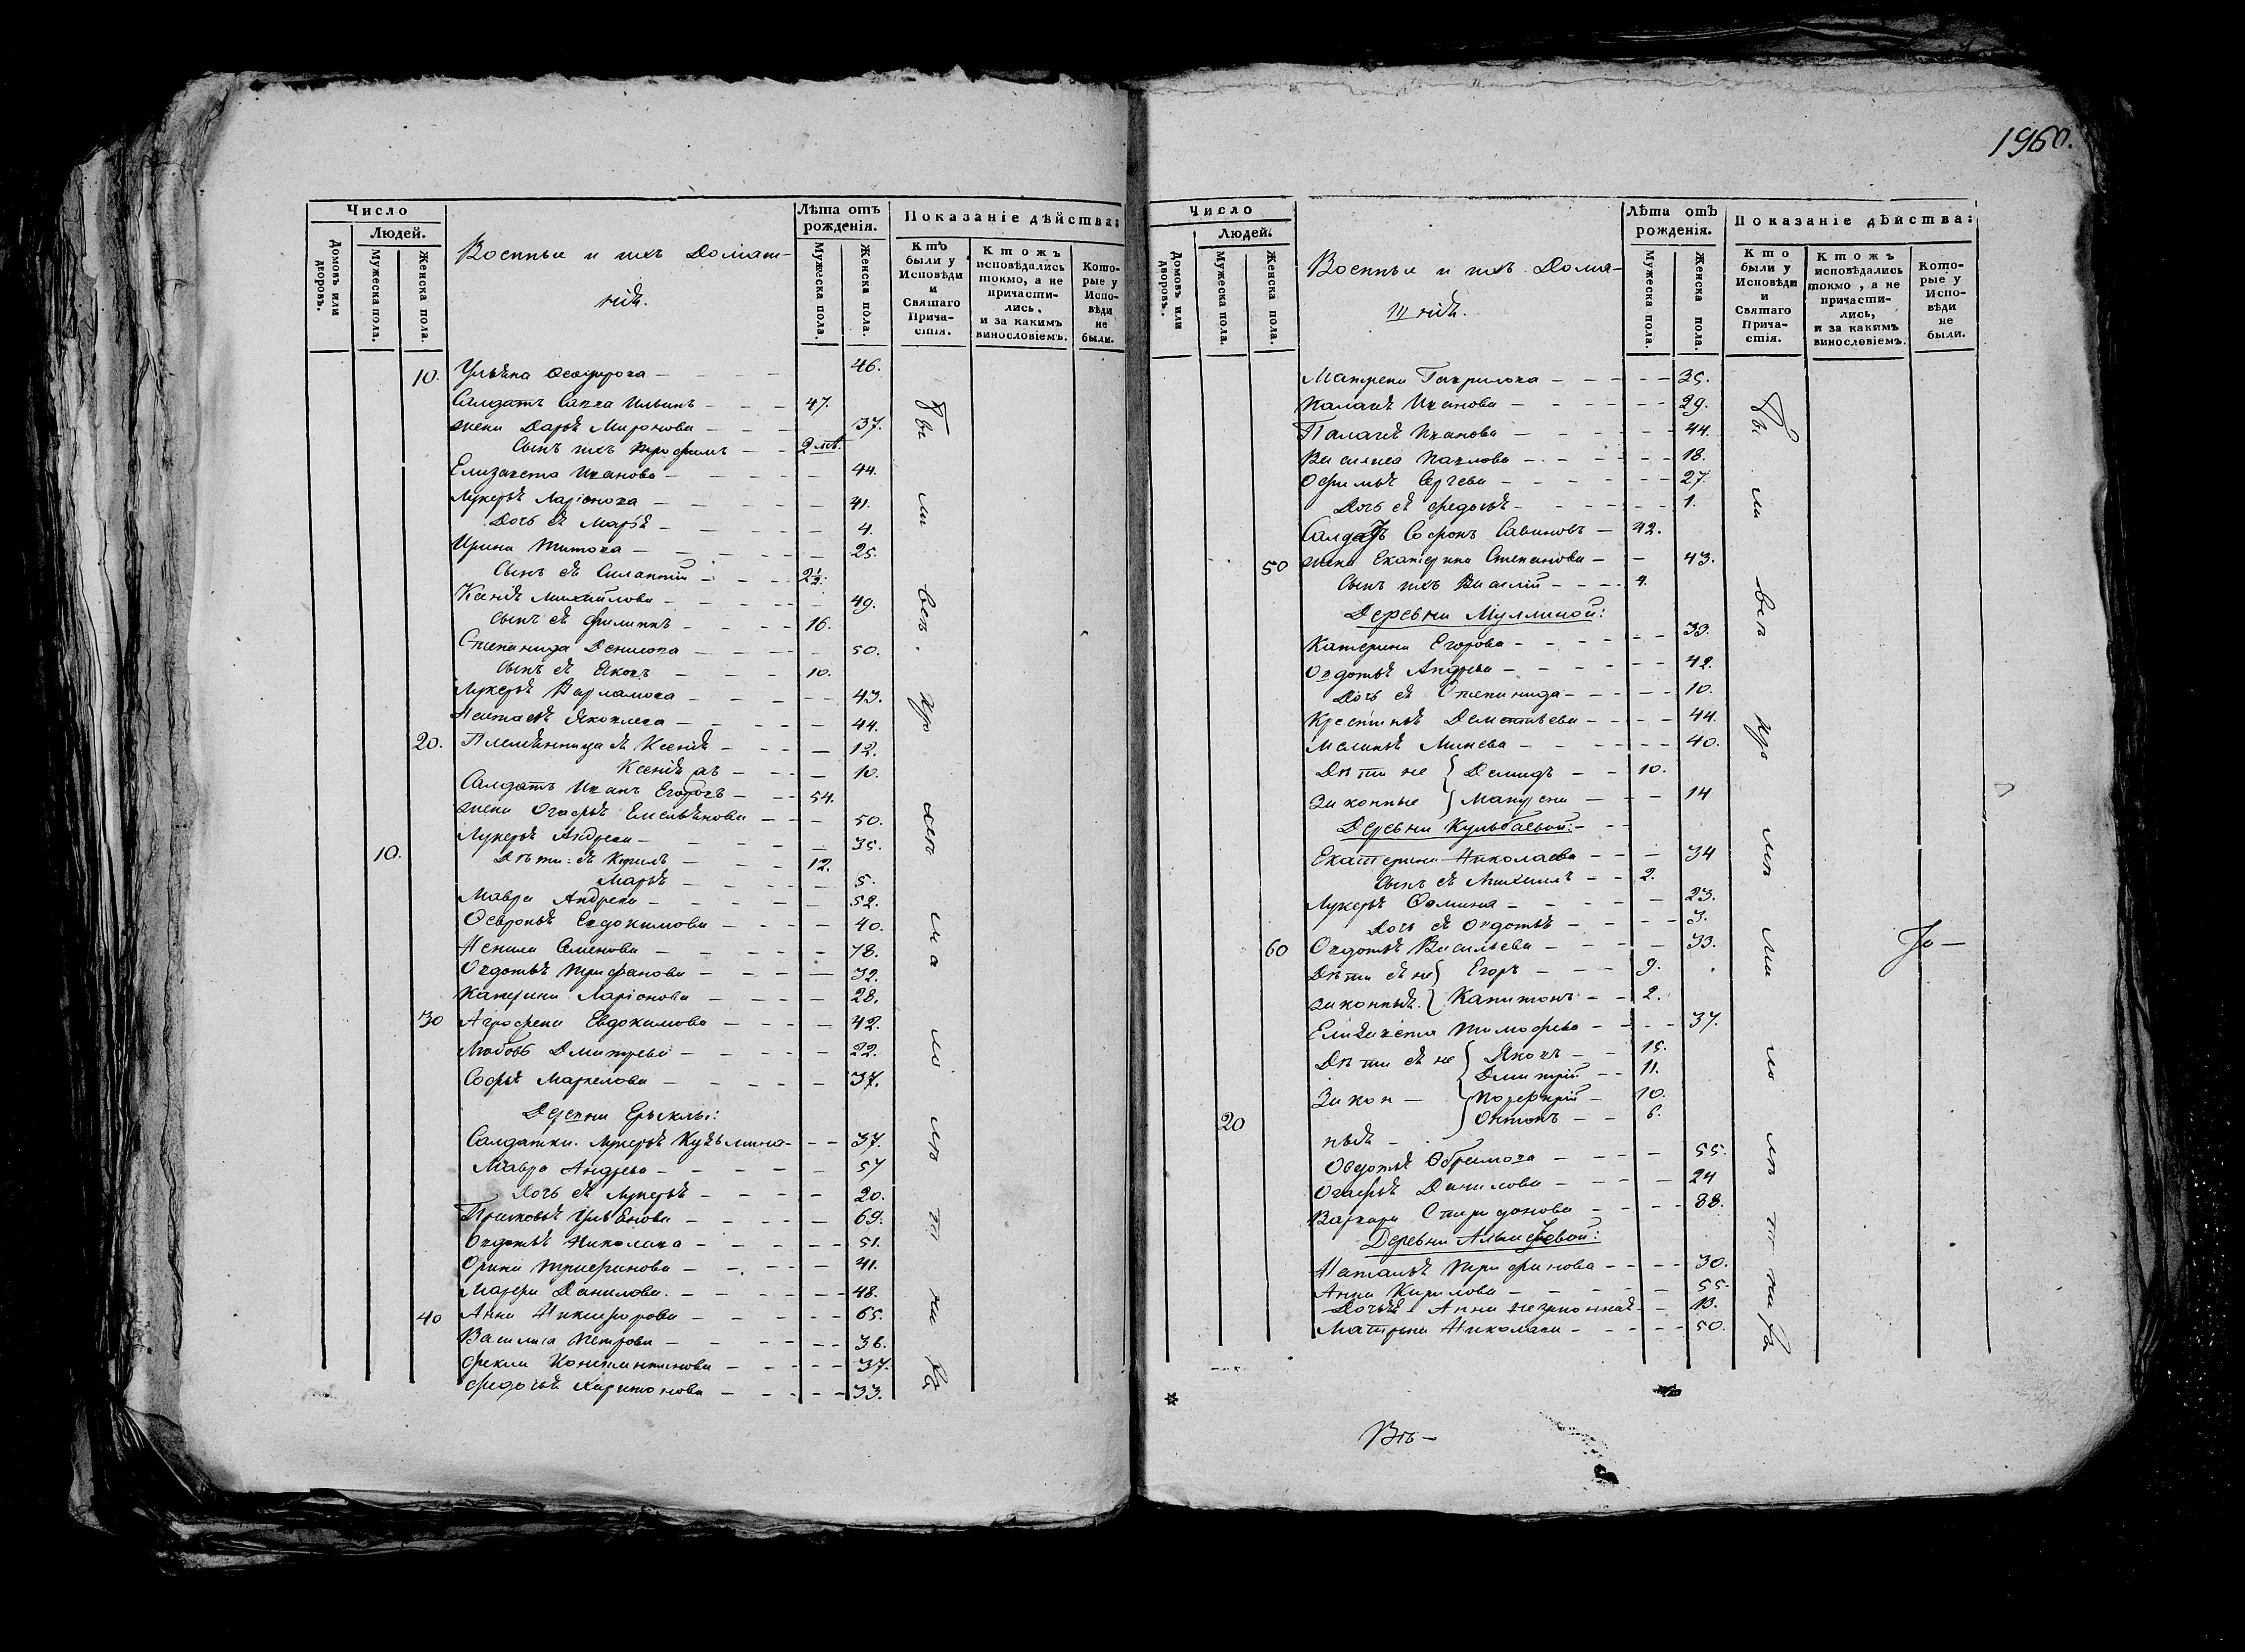 1960.
Число
Людей.
Домовъ или дворовъ.
Мужеска пола.
Женска пола.
Военные и ихъ Домаш-
ніе.
Лѣта отъ рожденія.
Мужеска пола.
Женска пола.
Показаніе дѣйства:
Кто были у Исповѣди и Святаго Прича-стія.
Ктожъ исповѣдались токмо, а не причасти-лись, и за какимъ винословіемъ.
Кото-рые у Испо-вѣди не были.
10. 46.
Салдатъ Савва Ильинъ - - - 47.
жена Дарьѣ Миронова - - - 37.
Сынъ ихъ Трофимъ - - 2 мѣ.
Елизавета Иванова - - - - 44.
Лукерьѣ Ларіонова - - - - 41.
Дочь еѣ Марьѣ - - - - 4.
Ирина Титова - - - - 25.
Сынъ еѣ Силантій - - - 2½.
Ксеніѣ Михайлова - - - - 49.
Сынъ еѣ Филиппъ - - - - 16.
Степанида Денисова - - - - 50.
Сынъ еѣ Яковъ - - - 10.
Лукерьѣ Варламова - - - - 43.
Настасьѣ Яковлева - - - - 44.
20. Племѣнница еѣ Ксеніѣ - - - 12.
Ксеніѣ - - - 10.
Салдатъ Иванъ Егоровъ - - - 54.
жена Огафьѣ Емельѣнова - - - 50.
Лукерьѣ Андреева - - - - 35.
10. Дѣти: еѣ Кирилъ - - - - 12.
Марьѣ - - - - 5.
Мавра Андреева - - - - - 52.
Февроньѣ Евдокимова - - - - 40.
Ненила Семенова - - - - - 78.
Овдотьѣ Трифанова - - - - 32.
Катерина Ларіонова - - - - 28.
30 Аграфена Евдокимова - - - - 42.
Любовь Дмитрева - - - - - 22.
Софьѣ Маркелова - - - - - 37.
Деревни Ерыклы:
Салдатки. Лукерьѣ Кузьмина - - - 37.
Мавра Андрева - - - - - 57
Дочь еѣ Лукерьѣ - - - - 20.
Прасковьѣ Ульѣнова - - - - 69.
Овдотьѣ Николаева - - - - - 51.
Орина Трифанова - - - - - 41.
Данилова. - - - - - 48.
40 Анна Никифорова - - - - - 65.
Василиса Петрова - - - - - 36.
Фекла Константинова - - - - - 37.
Федосьѣ Харитонова - - - - - 33.
Число
Людей.
Домовъ или дворовъ.
Мужеска пола.
Женска пола.
Военные и ихъ Дома-
шніе.
Лѣта отъ рожденія.
Мужеска пола.
Женска пола.
Показаніе дѣйства:
Кто были у Исповѣди и Святаго Прича-стія.
Ктожъ исповѣдались токмо, а не причасти-лись, и за какимъ винословіемъ.
Кото-рые у Испо-вѣди не были.
Матрена Гаврилова - - - - - 35.
Иванова - - - - - 29.
Палагеѣ Иванова - - - - - 44.
Василиса Павлова - - - - - 18.
Офимьѣ Сергева - - - - - 27.
Дочь еѣ Федосьѣ - - - - - 1.
Салдатъ Софронъ Савиновъ - 42.
50 жена Екатерина Степанова - - 43.
Сынъ ихъ Василій - - - - 4.
Деревни Муллиной:
Катерина Егорова - - - - - 33.
Овдотьѣ Андрева - - - - - 42.
Дочь еѣ Степанида - - - - - 10.
Крестиньѣ Дементьева - - - - 44.
Маланьѣ Минева - - - - - 40.
Дѣти не { Демидъ - - 10.
законные } Матрена - - - 14
Деревни Кульбаевой: - - -
Екатерина Николаева - - - 34
Сынъ еѣ Михаилъ - - 2.
Лукерьѣ Фомина - - - - - 23.
Дочь еѣ Овдотьѣ - - - - 3.
60 Овдотьѣ Васильева - - - - 33.
Дѣти еѣ не } Егоръ - - - 9.
законныѣ. { Капитонъ - - 2.
Елизавета Тимофева - - - - 37.
Дѣти еѣ не { Яковъ - - 15.
Дмитрій - - 11.
Закон - { Порфирій - 10.
20 } Онтонъ - - 6.
ныѣ -
Овдотьѣ Обрамова - - - - 55.
Огафьѣ Данилова - - - - 24
Варвара Спиридонова - - - - 88.
Деревни:
Натальѣ Трифанова - - - - 30.
Анна Кирилова - - - - - 55.
Дочь еѣ Анна незаконнаѣ - - 13.
Матрена Николаева - - - - - 50.
Въ -